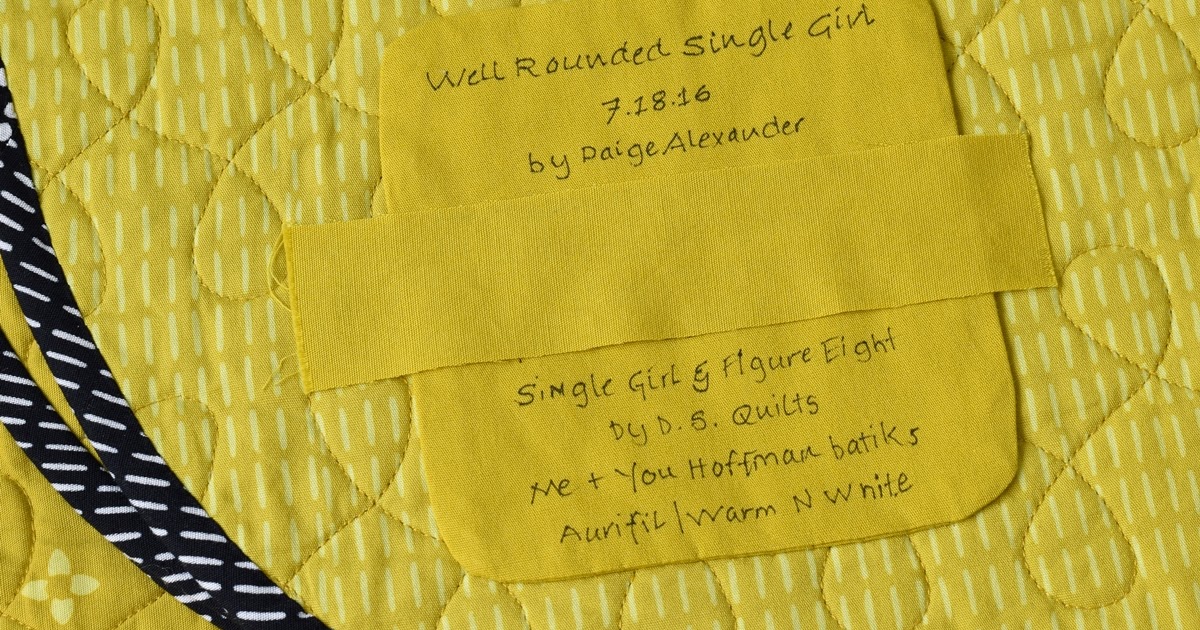 Well Rounded Single Girl
7.18.16
by Paige Alexander
Single Girl & Figure Eight
by D. S. Quilts
Me + You Hoffman batiks
Aurifil | Warm N White